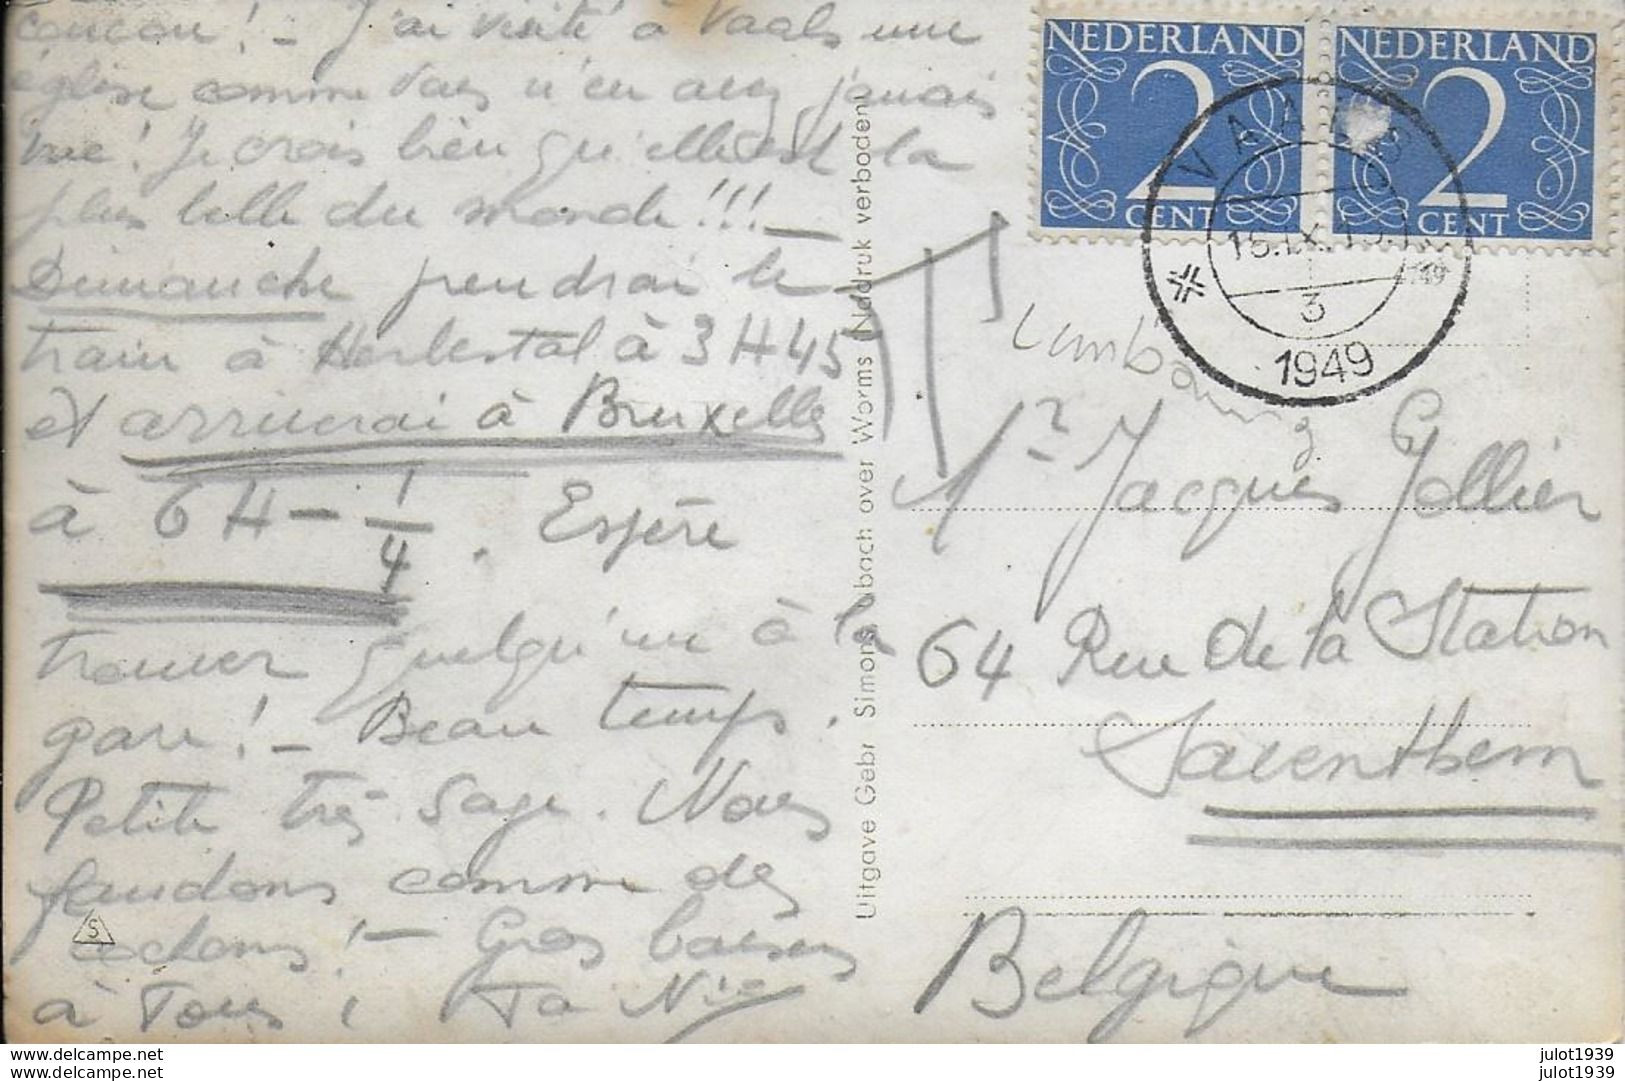 coucou! - J'ai visité à Vaals une
église comme vous n'en avez jamais
vue! Je crois bien qu'elle est la
plus belle du monde!!! -
Dimanche prendrai le
train à Herbestal à 3 H 45
et arriverai à Bruxelles
à 6 H - 1/4. Espère
trouver quelqu'un à la
gare! - Beau temps.
Petite très sage. Nous
fondons comme des
cochons! - Gros baisers
à Tous! Ta Nie
S
Uitgave Gebr Simons over Worms Nadruk verboden
NEDERLAND
2
CENT
NEDERLAND
2
CENT
VAALS
3
1949
Mr Jacques Jollier
64 Rue de la Station
Saventhem
Belgique
delcampe.net
delcampe.net
julot1939
julot1939